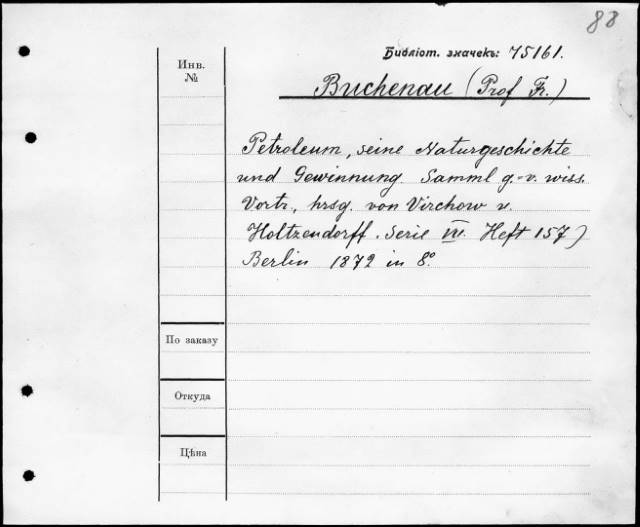 88
Библіот. значекъ: 75161.
Инв.
№
Buchenau (Prof Fr.)
Petroleum, seine Naturgeschichte
und Gewinnung Samml g.-v. wiss.
Vortr., hrsg. von Virchow u.
Holtzendorff. Serie VII. Heft 157)
Berlin 1872 in 8º.
По заказу
Откуда
Цѣна